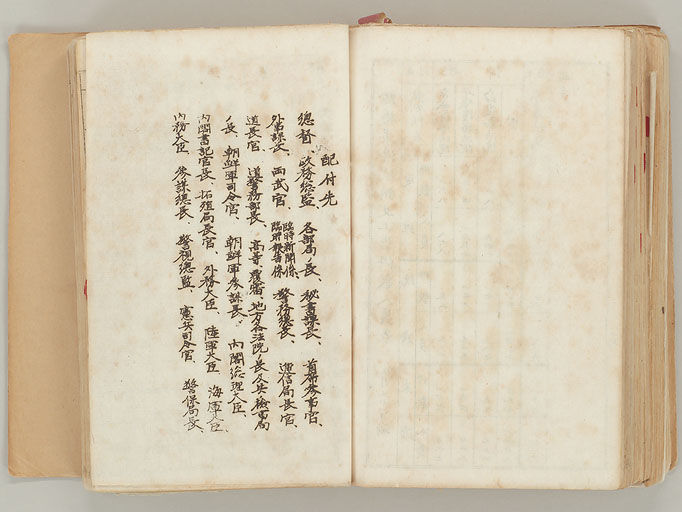 配付先
總督、政務總監、各部局長、秘書課長、首席参事官、
外事課長、両武官、臨時新聞係、臨時報告係 警務總長、逓信局長官、
道長官 道警務部長、高等、覆審、地方各法院ノ長及其検事局
ノ長、朝鮮軍司令官、朝鮮軍参謀長、内閣総理大臣、
内閣書記官長、拓殖局長官、外務大臣、陸軍大臣 海軍大臣、
内務大臣、参謀總長、警視總監、憲兵司令官、警保局長、